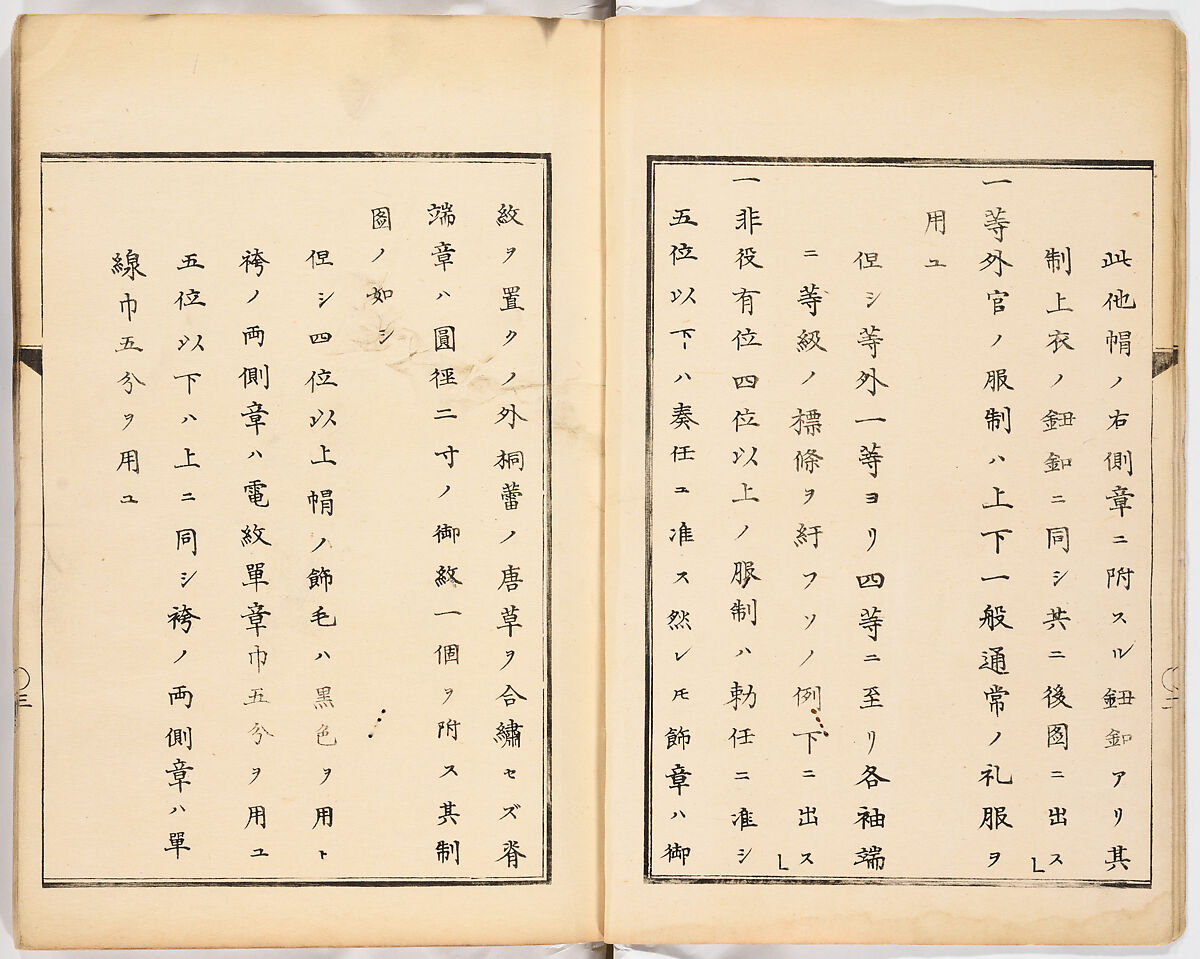 此他帽ノ右側章ニ附スル鈕釦アリ其
制上衣ノ鈕釦ニ同シ共ニ後図ニ出ス
一等外官ノ服制ハ上下一般通常ノ礼服ヲ
用ユ
但シ等外一等ヨリ四等ニ至リ各袖端
ニ等級ノ標條ヲ紆フソノ例下ニ出ス
一非役有位四位以上ノ服制ハ勅任ニ准シ
五位以下ハ奏任ユ准ス然レ𪜈飾章ハ御
紋ヲ置クノ外桐蕾ノ唐草ヲ合繡セズ脊
端章ハ圓徑二寸ノ御紋一個ヲ附ス其制
図ノ如シ
但シ四位以上帽ノ飾毛ハ黒色ヲ用ト
袴ノ両側章ハ電紋單章巾五分ヲ用ユ
五位以下ハ上ニ同シ袴ノ両側章ハ單
線巾五分ヲ用ユ
二
三